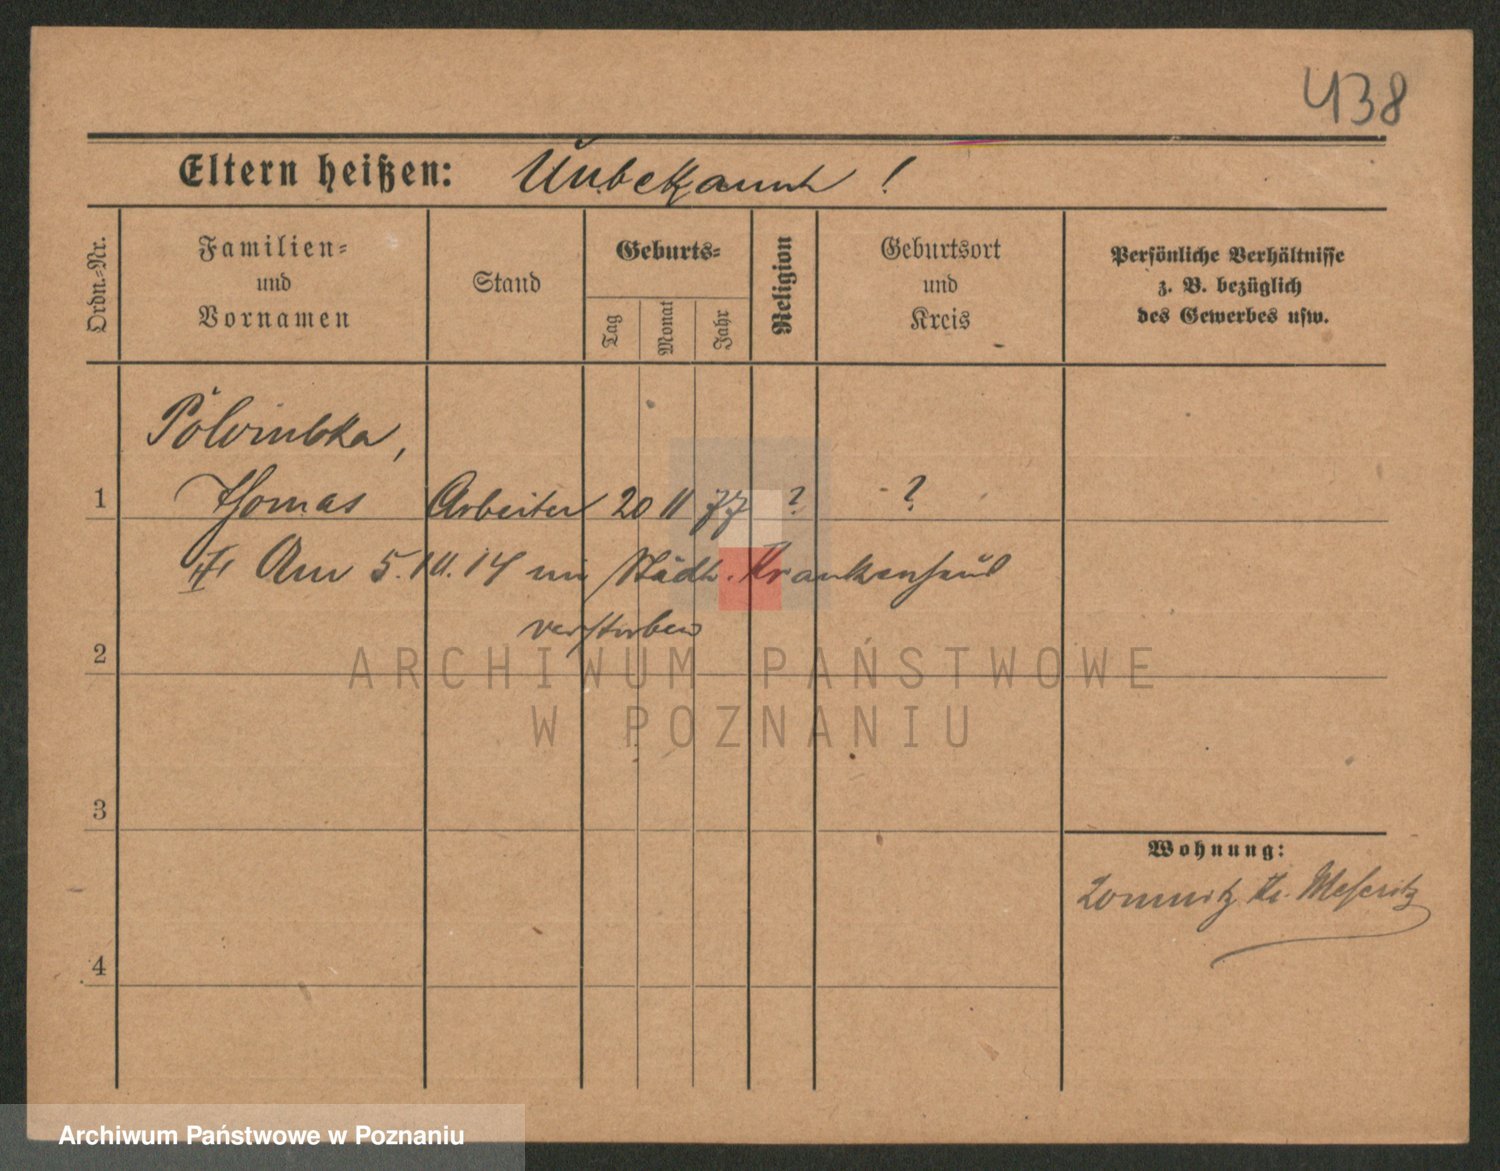 438
Eltern heißen: Unbekannt!
Ordn.-Nr.
Familien-
und
Vornamen
Stand
Geburts-
Tag
Monat
Jahr
Religion
Geburtsort
und
Kreis
Persönliche Verhältnisse
z. B. bezüglich
des Gewerbes usw.
1 Thomas Arbeiter 20 11 77 ? ?
Am 5. 10. 14 im Städt. Krankenhaus
verstorben
2
3
4
Wohnung:
Lomnitz Kr. Meseritz
ARCHIWUM PAŃSTWOWE
W POZNANIU
Archiwum Państwowe w Poznaniu